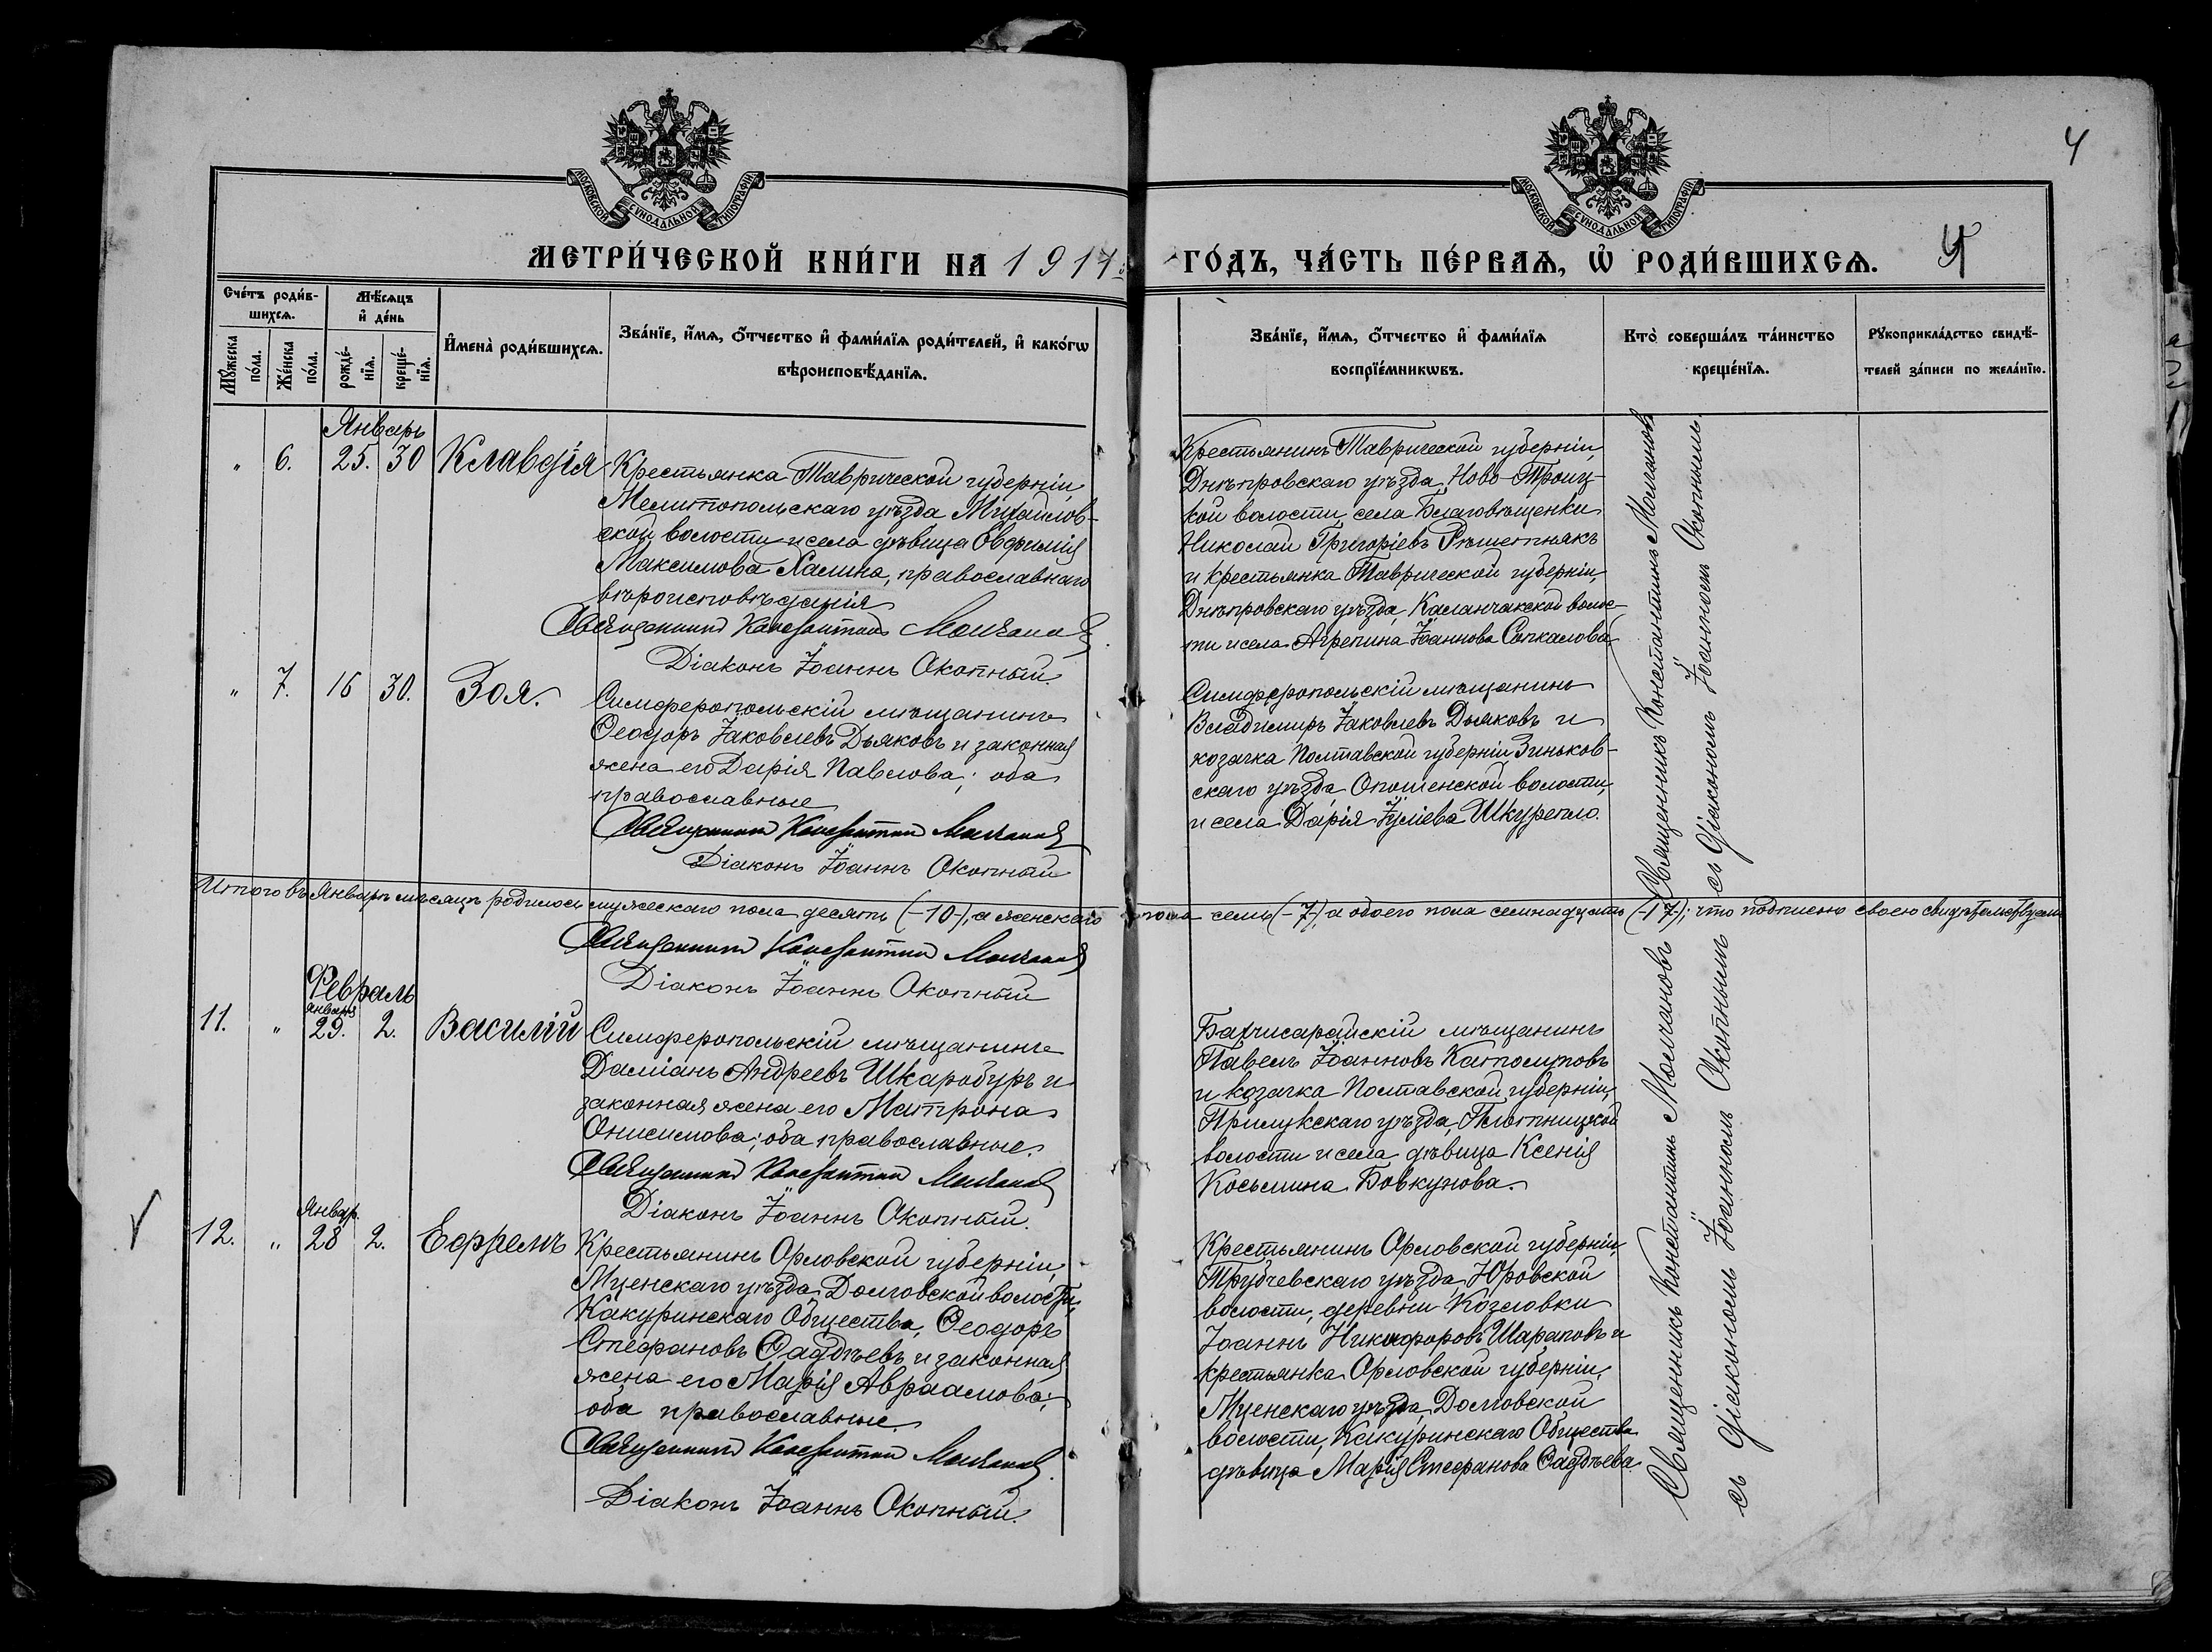 4
МОСКОВСКОЙ СѴНОДАЛЬНОЙ ТИПОГРАФІИ
МОСКОВСКОЙ СѴНОДАЛЬНОЙ ТИПОГРАФІИ
МЕТРИ́ЧЕСКОЙ КНИ́ГИ НА 1917
ГО́ДЪ, ЧА́СТЬ ПЕ́РВАѦ, Ѡ҆ РОДИ́ВШИХСѦ.
Сче́тъ роди́в-
шихсѧ.
Мꙋ́жеска
по́ла.
Же́нска
по́ла.
Мѣ́сѧцъ
и҆ де́нь
рожде́-
нїѧ.
креще́-
нїѧ.
И҆мена̀ роди́вшихсѧ.
Зва́нїе, и҆́мѧ, ѻ҆́тчество и҆ фами́лїѧ роди́телей, и҆ како́гѡ
вѣроисповѣ́данїѧ.
Зва́нїе, и҆́мѧ, ѻ҆́тчество и҆ фами́лїѧ
воспрїе́мникѡвъ.
Кто̀ соверша́лъ та́инство
креще́нїѧ.
Рꙋкоприкла́дство свидѣ́-
телей за́писи по жела́нїю.
Январь
" 6. 25. 30 Клавдія
Крестьянка Таврической губерніи,
Мелитопольскаго уѣзда Михайлов-
ской волости и села дѣвица Евфимія
Максимова Халина, православнаго
вѣроисповѣданія
Священникъ Константинъ Молчановъ
Діаконъ Іоаннъ Окопный.
Крестьянинъ Таврической губерніи,
Днѣпровскаго уѣзда, Ново-Троиц-
кой волости, села Благовѣщенки
Николай Григоріевъ Рѣшетнякъ
и крестьянка Таврической губерніи,
Днѣпровскаго уѣзда, Каланчакской волос-
ти и села Агрепина Іоаннова Сопкалова
" 7. 16 30. Зоя.
Симферопольскій мѣщанинъ
Ѳеодоръ Іаковлевъ Дьяковъ и законная
жена его Дарія Павлова; оба
православные
Священникъ Константинъ Молчановъ
Діаконъ Іоаннъ Окопный
Симферопольскій мѣщанинъ
Владимиръ Іаковлевъ Дьяковъ и
козачка Полтавской губерніи, Зиньков-
скаго уѣзда, Опошенской волости,
и села Дарія Іуліева Шкурепло.
Священникъ Константинъ Молчановъ
съ діакономъ Іоанномъ Окопнымъ.
Итого въ Январѣ мѣсяцѣ родилось мужескаго пола десять (-10-), а женскаго пола семь (-7-), а обоего пола семнадцать (-17-); что подписью своею свидѣтельствуемъ
Священникъ Константинъ Молчановъ
Діаконъ Іоаннъ Окопный
Февраль
января
11. " 29. 2. Василій
Симферопольскій мѣщанинъ
Даміанъ Андреевъ Шкаробуръ и
законная жена его Матрона
Онисимова; оба православные.
Священникъ Константинъ Молчановъ
Діаконъ Іоаннъ Окопный.
Бахчисарайскій мѣщанинъ
Павелъ Іоанновъ Католуповъ
и козачка Полтавской губерніи,
Прилукскаго уѣзда,
волости и села дѣвица Ксенія
Косьмина Бовкунова.
Январ.
12. " 28 2. Ефремъ
Крестьянинъ Орловской губерніи,
Мценскаго уѣзда, Долговской волости,
Какуринскаго Общества, Ѳеодоръ
Стефановъ Ѳаддѣевъ и законная
жена его Марія Авраамова;
оба православные.
Священникъ Константинъ Молчановъ.
Діаконъ Іоаннъ Окопный.
Крестьянинъ Орловской губерніи,
Трубчевскаго уѣзда, Юровской
волости, деревни Козловки
Іоаннъ Никифоровъ Шараповъ и
крестьянка Орловской губерніи,
Мценскаго уѣзда, Долговской
волости, Какуринскаго Общества
дѣвица Марія Стефанова Ѳаддѣева.
Священникъ Константинъ Молчановъ
съ діакономъ Іоанномъ Окопнымъ